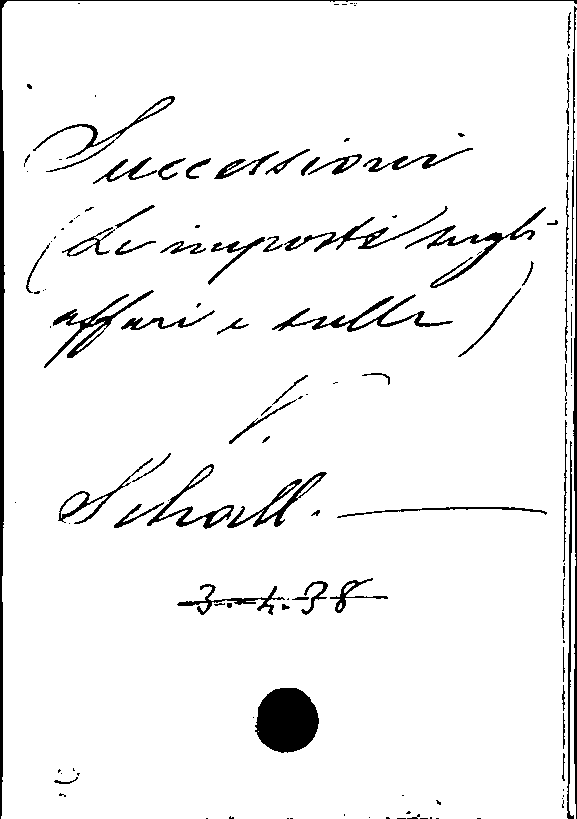 Successioni
(Le imposte sugli
affari e sulle)
V.
Schall.
3.4.38